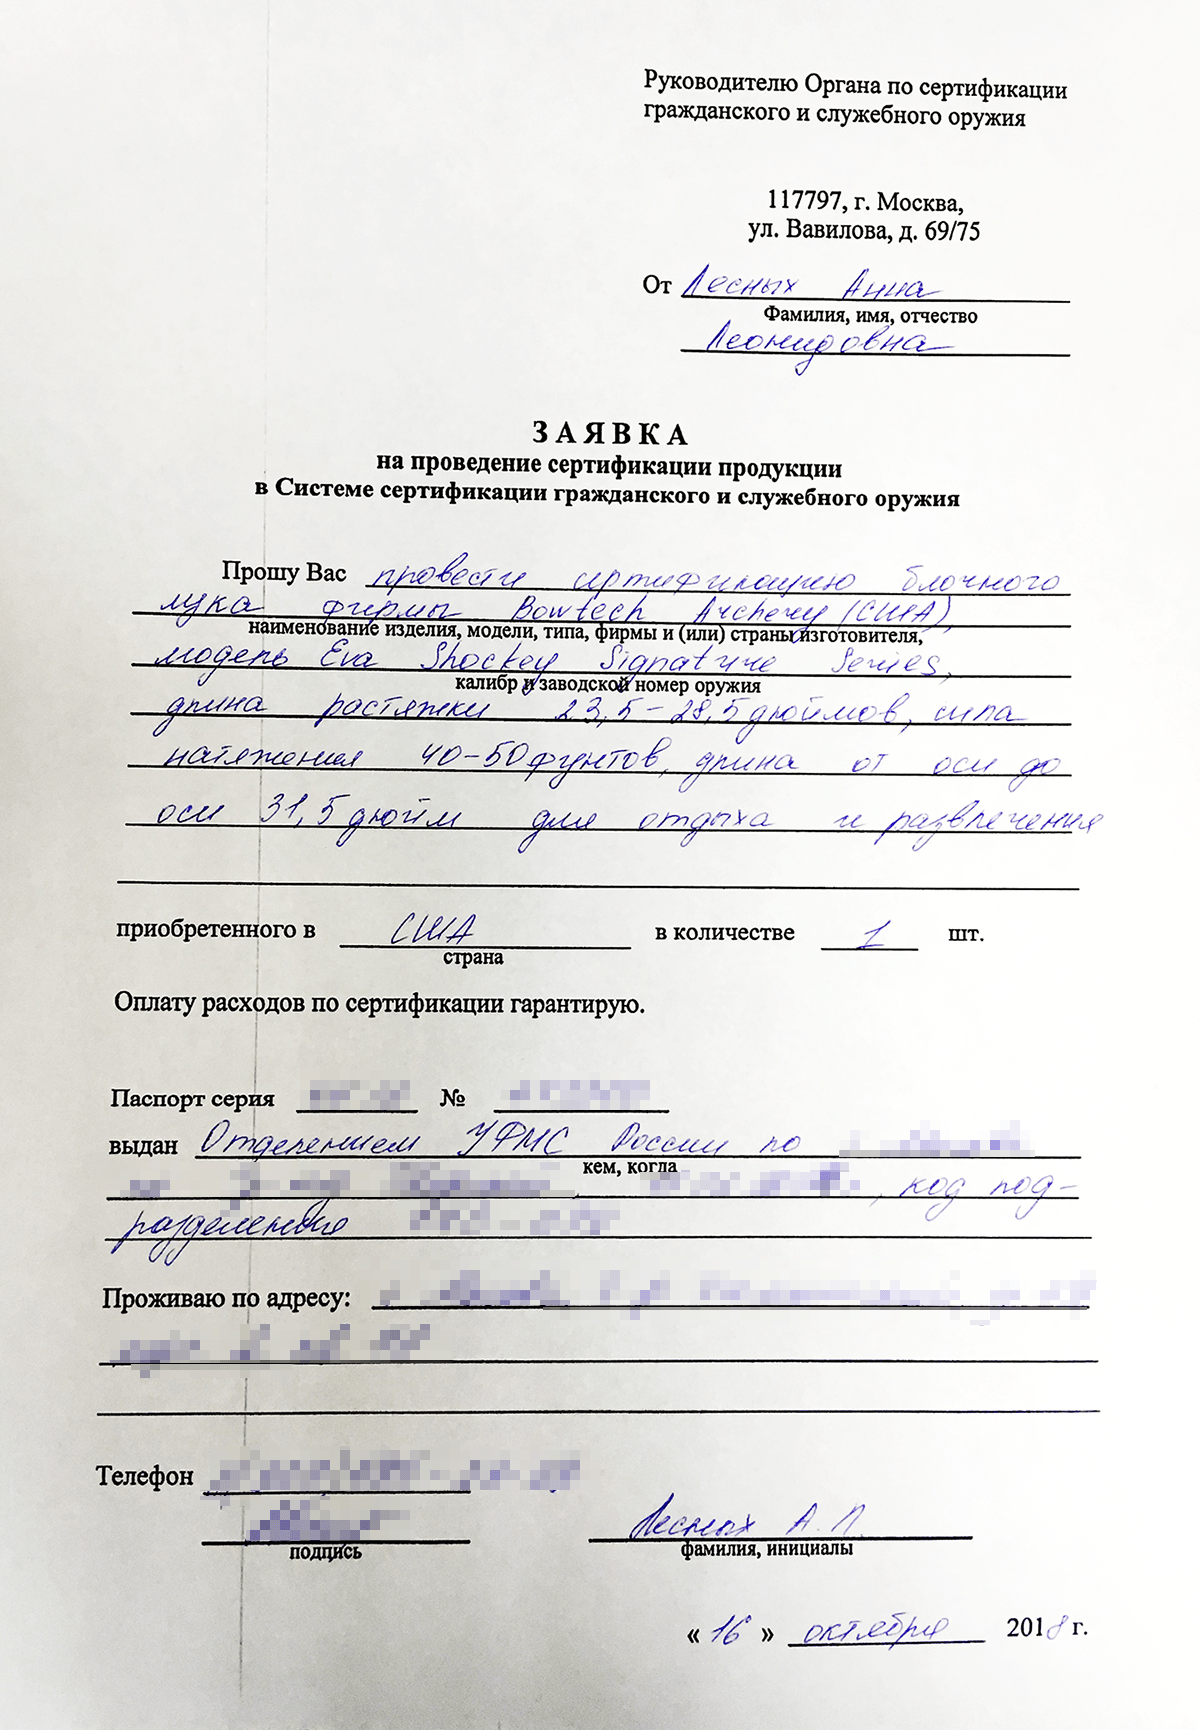 Руководителю Органа по сертификации
гражданского и служебного оружия
117797, г. Москва,
ул. Вавилова, д. 69/75
От Лесных Анна
Фамилия, имя, отчество
Леонидовна
ЗАЯВКА
на проведение сертификации продукции
в Системе сертификации гражданского и служебного оружия
Прошу Вас провести сертификацию блочного
лука фирмы Bowtech Archery (США),
наименование изделия, модели, типа, фирмы и (или) страны изготовителя,
модель Eva Shockey Signature Series,
калибр и заводской номер оружия
длина растяжки 23,5-28,5 дюймов, сила
натяжения 40-50 фунтов, длина от оси до
оси 31,5 дюйм для отдыха и развлечения
приобретенного в США в количестве 1 шт.
страна
Оплату расходов по сертификации гарантирую.
Паспорт серия №
выдан Отделением УФМС России по
кем, когда
, код под-
разделения
Проживаю по адресу:
Телефон
Лесных А. Л.
подпись фамилия, инициалы
« 16 » октября 2018 г.